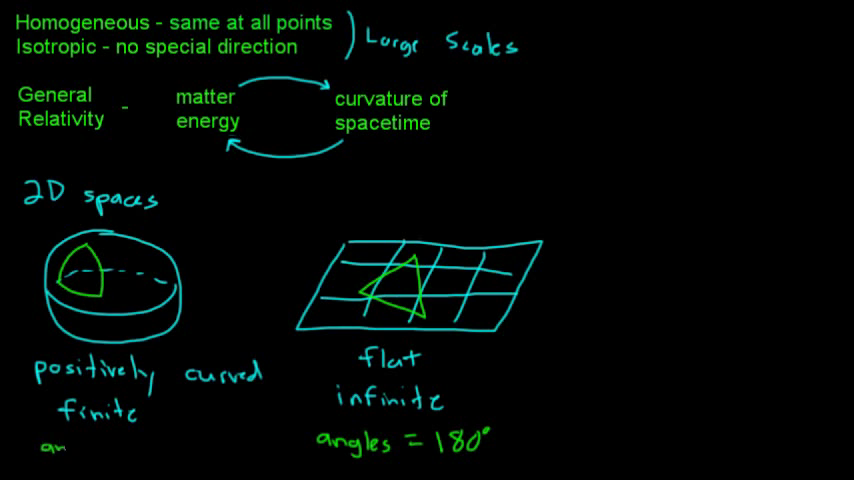 Homogeneous - same at all points
Isotropic - no special direction
Large Scales
General Relativity -
matter energy
curvature of spacetime
2D spaces
positively curved
finite
an
flat
infinite
angles = 180°